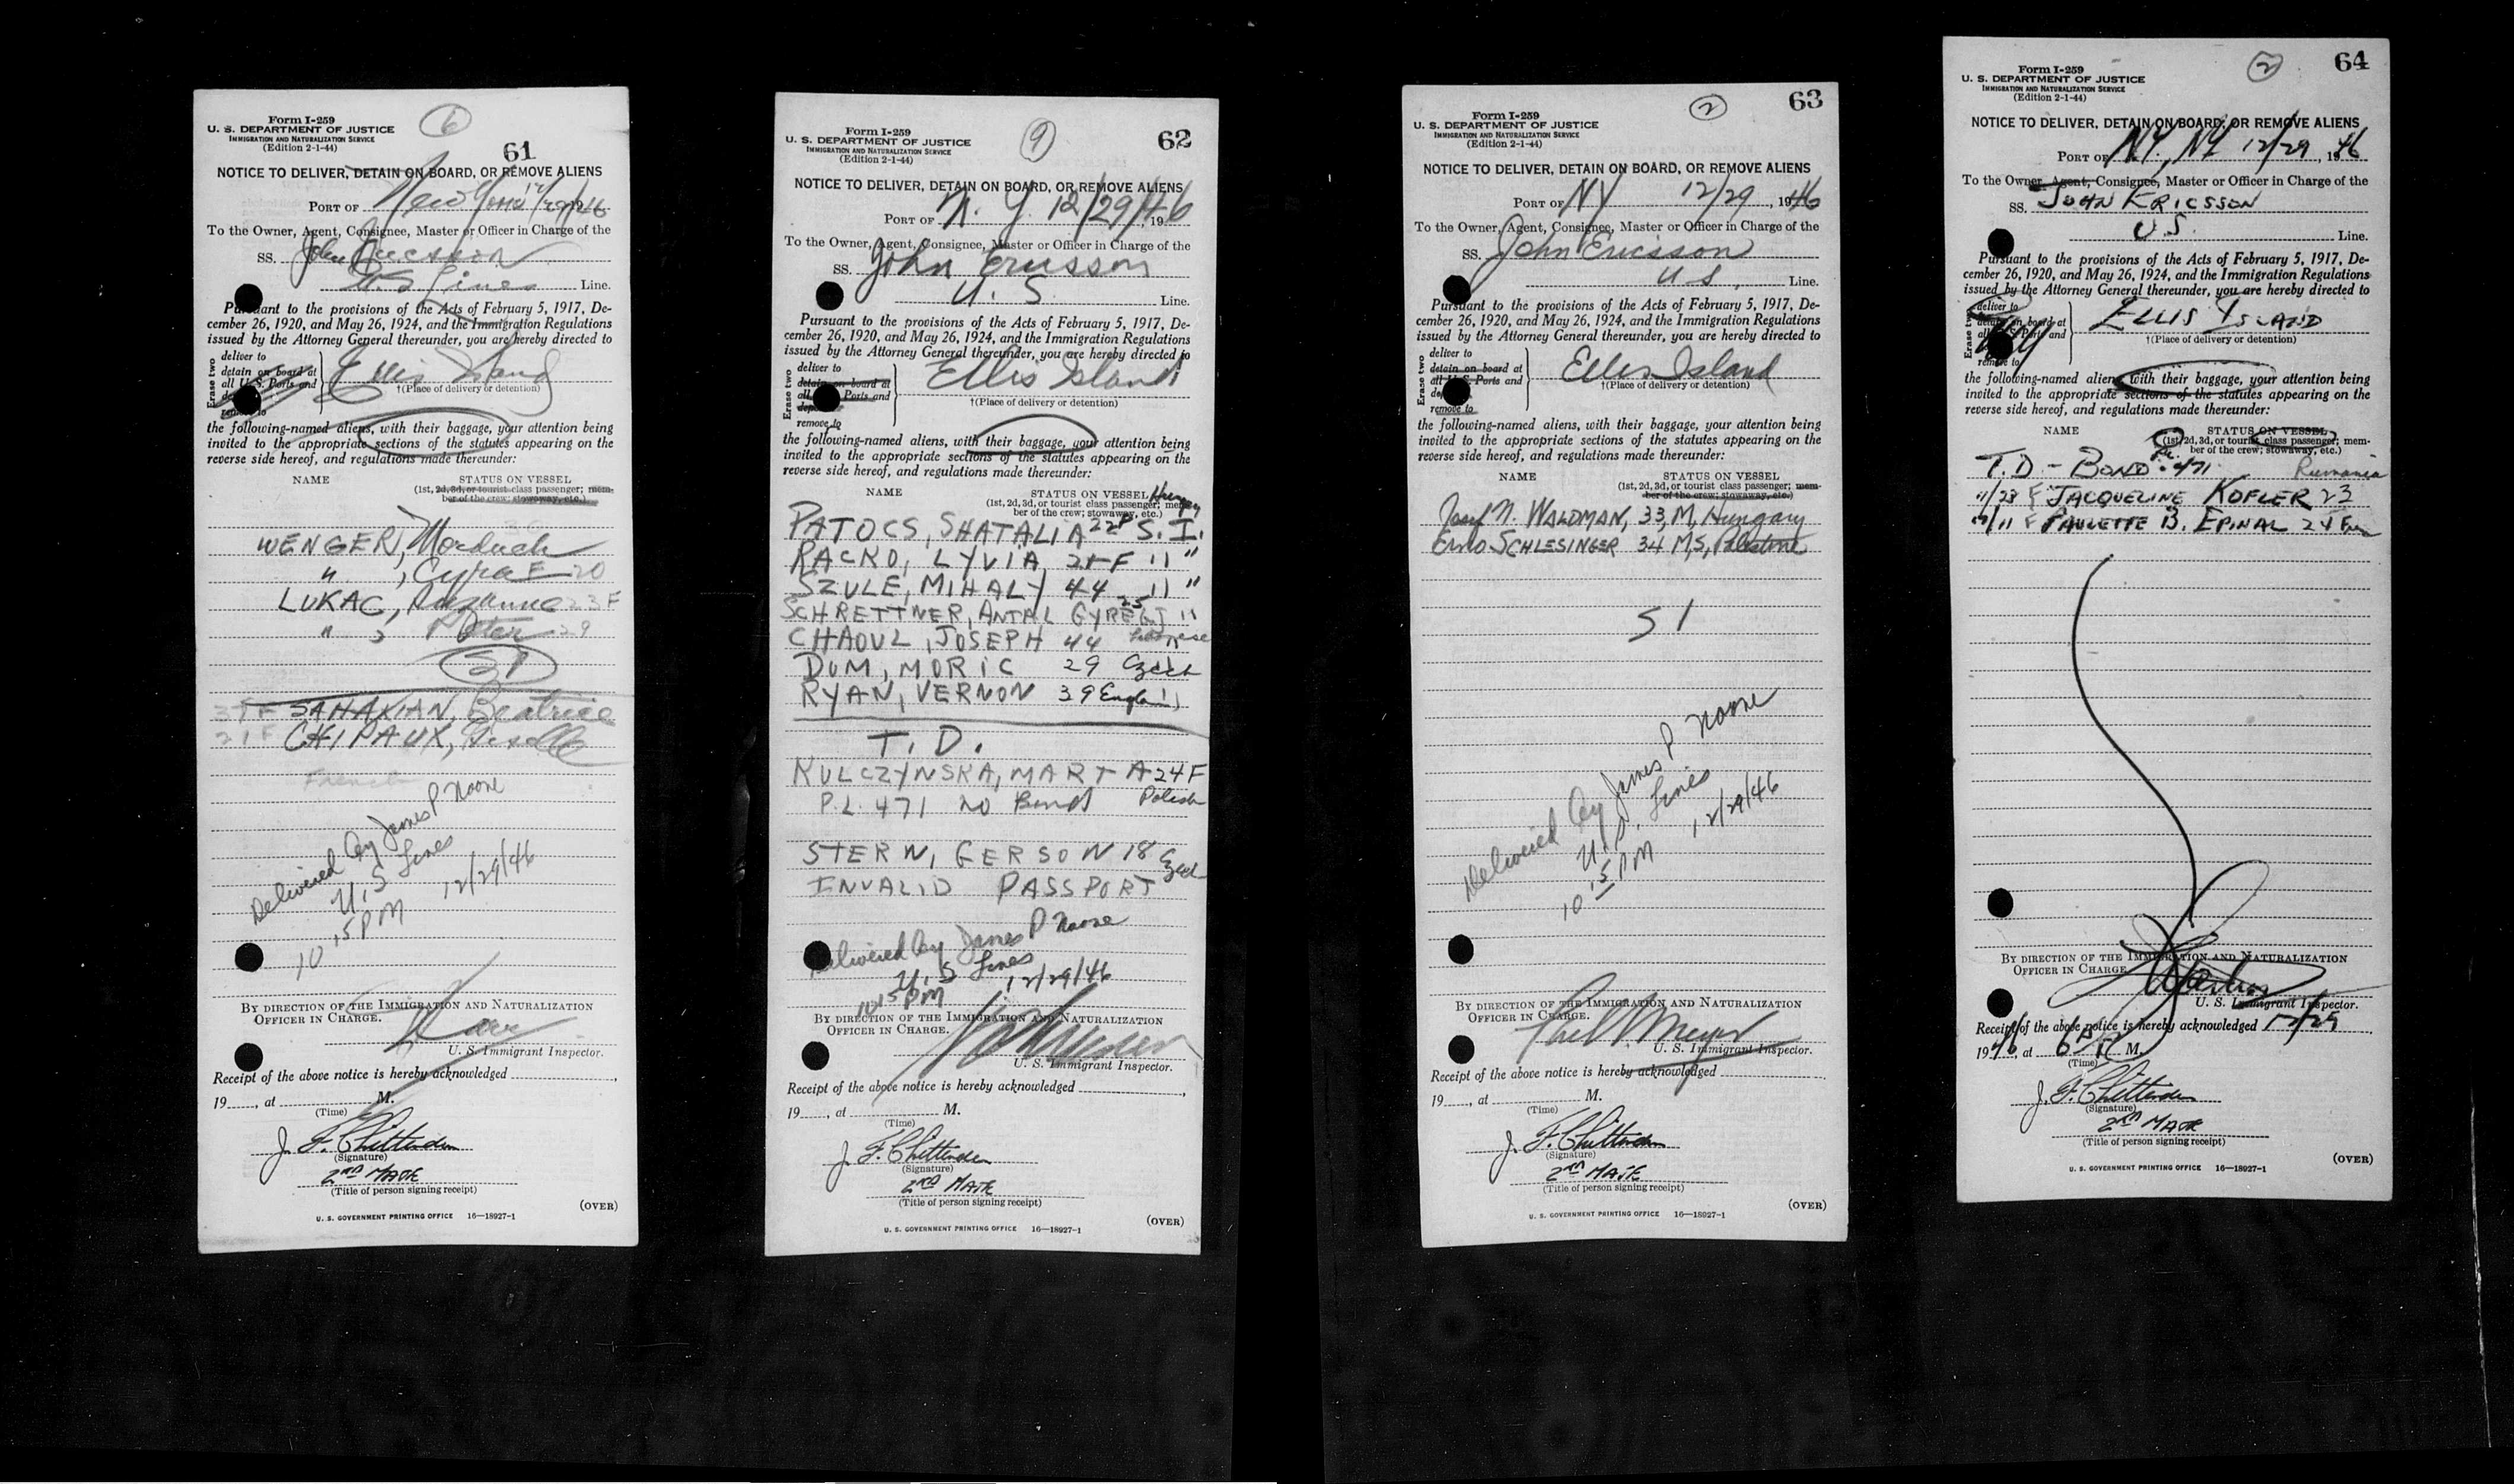 Form I-259
6
U. S. DEPARTMENT OF JUSTICE
IMMIGRATION AND NATURALIZATION SERVICE
(Edition 2-1-44)
61
NOTICE TO DELIVER, DETAIN ON BOARD, OR REMOVE ALIENS
PORT OF New York 12/29/46
To the Owner, Agent, Consignee, Master or Officer in Charge of the
SS. John Ericsson
U.S Lines Line.
Pursuant to the provisions of the Acts of February 5, 1917, De-
cember 26, 1920, and May 26, 1924, and the Immigration Regulations
issued by the Attorney General thereunder, you are hereby directed to
Erase two
deliver to
detain on board at
all U.S. Ports and
remove to
Ellis Island
†(Place of delivery or detention)
the following-named aliens, with their baggage, your attention being
invited to the appropriate sections of the statutes appearing on the
reverse side hereof, and regulations made thereunder:
NAME STATUS ON VESSEL
(1st, 2d, 3d, or tourist class passenger; mem-
ber of the crew; stowaway, etc.)
WENGER, Morduch
" , Cyra F 20
LUKAC, Suzanne 23 F
" , Peter 29
SI
37 F SAHAKIAN, Beatrice
21 F CHIPAUX, Giselle
French
Delivered by James P Noone
U.S Lines
10 15 PM 12/29/46
BY DIRECTION OF THE IMMIGRATION AND NATURALIZATION
OFFICER IN CHARGE.
U. S. Immigrant Inspector.
Receipt of the above notice is hereby acknowledged
19 , at M.
(Time)
J. F. Chittenden
(Signature)
2ND MATE
(Title of person signing receipt)
(OVER)
U. S. GOVERNMENT PRINTING OFFICE 16—18927-1
Form I-259
9
62
U. S. DEPARTMENT OF JUSTICE
IMMIGRATION AND NATURALIZATION SERVICE
(Edition 2-1-44)
NOTICE TO DELIVER, DETAIN ON BOARD, OR REMOVE ALIENS
PORT OF N. Y. 12/29/46, 19
To the Owner, Agent, Consignee, Master or Officer in Charge of the
SS. John Ericsson
U. S. Line.
Pursuant to the provisions of the Acts of February 5, 1917, De-
cember 26, 1920, and May 26, 1924, and the Immigration Regulations
issued by the Attorney General thereunder, you are hereby directed to
Erase two
deliver to
detain on board at
all U.S. Ports and
remove to
Ellis Island
†(Place of delivery or detention)
the following-named aliens, with their baggage, your attention being
invited to the appropriate sections of the statutes appearing on the
reverse side hereof, and regulations made thereunder:
NAME STATUS ON VESSEL
(1st, 2d, 3d, or tourist class passenger; mem-
ber of the crew; stowaway, etc.)
PATOCS, SHATALIA 22 S. I.
RACKO, LYVIA 21 F " "
SZULE, MIHALY 44 " "
SCHRETTNER, ANTAL GYREGJ 25 "
CHAOUL, JOSEPH 44
DUM, MORIC 29 Czech
RYAN, VERNON 39 England
T. D.
KULCZYNSKA, MARTA 24 F
P.L. 471 NO Bond Polish
STERN, GERSON 18 Czech
INVALID PASSPORT
Delivered by James P Noone
U.S Lines 12/29/46
10 15 PM
BY DIRECTION OF THE IMMIGRATION AND NATURALIZATION
OFFICER IN CHARGE.
U. S. Immigrant Inspector.
Receipt of the above notice is hereby acknowledged
19 , at M.
(Time)
J. F. Chittenden
(Signature)
2ND MATE
(Title of person signing receipt)
(OVER)
U. S. GOVERNMENT PRINTING OFFICE 16—18927-1
Form I-259
2
63
U. S. DEPARTMENT OF JUSTICE
IMMIGRATION AND NATURALIZATION SERVICE
(Edition 2-1-44)
NOTICE TO DELIVER, DETAIN ON BOARD, OR REMOVE ALIENS
PORT OF NY 12/29, 1946
To the Owner, Agent, Consignee, Master or Officer in Charge of the
SS. John Ericsson
U S. Line.
Pursuant to the provisions of the Acts of February 5, 1917, De-
cember 26, 1920, and May 26, 1924, and the Immigration Regulations
issued by the Attorney General thereunder, you are hereby directed to
Erase two
deliver to
detain on board at
all U.S. Ports and
remove to
Ellis Island
†(Place of delivery or detention)
the following-named aliens, with their baggage, your attention being
invited to the appropriate sections of the statutes appearing on the
reverse side hereof, and regulations made thereunder:
NAME STATUS ON VESSEL
(1st, 2d, 3d, or tourist class passenger; mem-
ber of the crew; stowaway, etc.)
Josef N. WALDMAN, 33, M, Hungary
Erno SCHLESINGER 34 M, S, Palestine
SI
Delivered by James P Noone
U.S. Lines
10 15 PM 12/29/46
BY DIRECTION OF THE IMMIGRATION AND NATURALIZATION
OFFICER IN CHARGE.
U. S. Immigrant Inspector.
Receipt of the above notice is hereby acknowledged
19 , at M.
(Time)
J. F. Chittenden
(Signature)
2ND MATE
(Title of person signing receipt)
(OVER)
U. S. GOVERNMENT PRINTING OFFICE 16—18927-1
Form I-259
2
64
U. S. DEPARTMENT OF JUSTICE
IMMIGRATION AND NATURALIZATION SERVICE
(Edition 2-1-44)
NOTICE TO DELIVER, DETAIN ON BOARD, OR REMOVE ALIENS
PORT OF N.Y., NY 12/29, 1946
To the Owner, Agent, Consignee, Master or Officer in Charge of the
SS. JOHN ERICSSON
U.S. Line.
Pursuant to the provisions of the Acts of February 5, 1917, De-
cember 26, 1920, and May 26, 1924, and the Immigration Regulations
issued by the Attorney General thereunder, you are hereby directed to
Erase two
deliver to
detain on board at
all U.S. Ports and
remove to
ELLIS ISLAND
†(Place of delivery or detention)
the following-named aliens, with their baggage, your attention being
invited to the appropriate sections of the statutes appearing on the
reverse side hereof, and regulations made thereunder:
NAME STATUS ON VESSEL
(1st, 2d, 3d, or tourist class passenger; mem-
ber of the crew; stowaway, etc.)
T. D - BOND P.L. 471 Rumania
11/28 F JACQUELINE KOFLER 23
F PAULETTE B. EPINAL 24
BY DIRECTION OF THE IMMIGRATION AND NATURALIZATION
OFFICER IN CHARGE.
U. S. Immigrant Inspector.
Receipt of the above notice is hereby acknowledged 12/29
1946, at 6 P M.
(Time)
J. F. Chittenden
(Signature)
2ND MATE
(Title of person signing receipt)
(OVER)
U. S. GOVERNMENT PRINTING OFFICE 16—18927-1